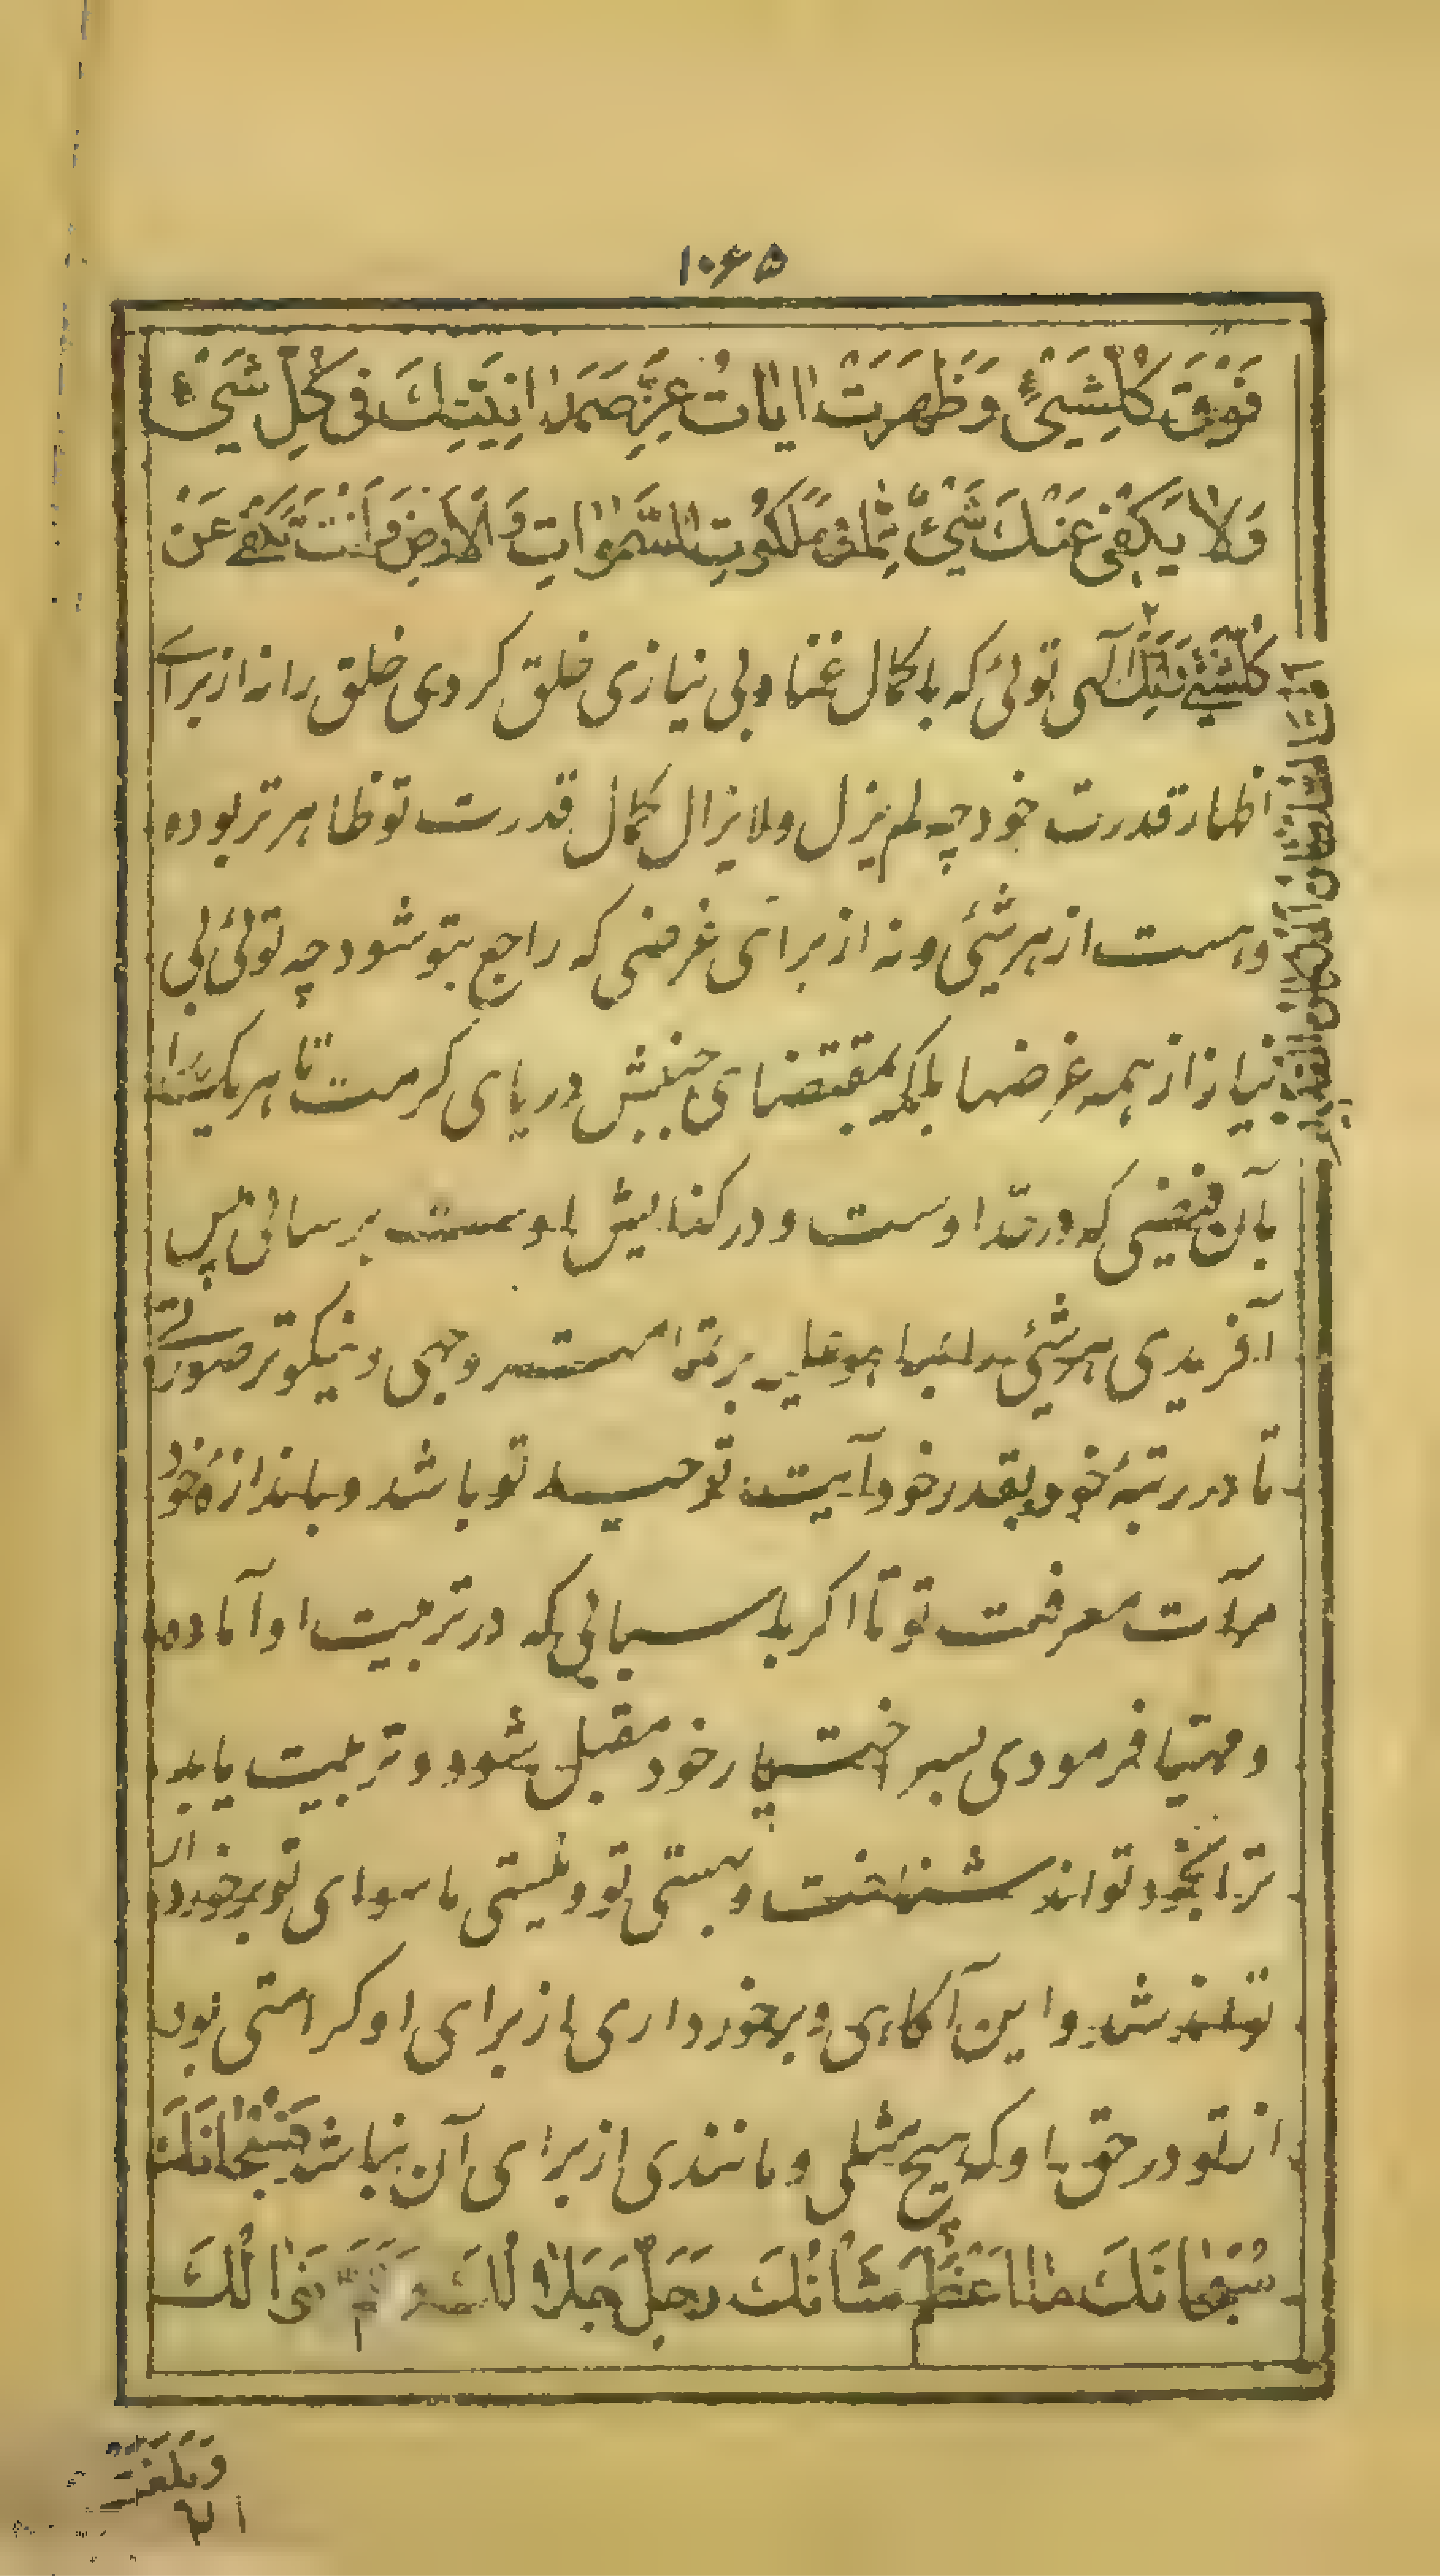 ۱۰۶۵
فَوْقَ كُلِّشَیْءٍ وَظَهَرَتْ اٰیٰاتُ عِزِّ صَمَدٰانِیَّتِكَ فی كُلِّ شَیْءٍ
وَلٰا یَكْفی عَنْكَ شَیْءٌ مِمّٰا فی مَلَكُوتِ السَّمٰوٰاتِ وَالْاَرْضِ وَاَنْتَ تَكْفی عَنْ
كُلِّشَیْءٍ الهی توئی که با کمال غنا و بی نیازی خلق کردی خلق را نه از برای
اظهار قدرت خود چه لم یزل و لا یزال کمال قدرت تو ظاهر تر بوده
و هست از هر شیئی و نه از برای غرضی که راجع بتو شود چه توئی بی
نیاز از همه غرضها بلکه بمقتضای جنبش دریای کرمت تا هر یک را
بآن فیضی که در قد اوست و در گنجایش اوست برسانی پس
آفریدی هر شیئی را و نیکوتر صورتی
تا در رتبهٔ خود بقدر خود آیت توحید تو باشد و باندازهٔ خود
مرآت معرفت تو تا اگر باسبابی که در تربیت او آماده
و مهیا فرمودی بسر اختیار خود مقبل شود و تربیت یابد
ترا بخود تواند شناخت و هستی تو و نیستی ما سوای تو برخورد از
تواند شد و این آگاهی و برخورداری از برای او کرامتی بود
از تو در حق او که هیچ مثلی و مانندی از برای آن نباشد فَسُبْحٰانَكَ
سُبْحٰانَكَ مٰا اَعْظَمَ شَاْنُكَ وَجَلَّ جَلٰالُكَ وَعَمَّ نَوٰالُكَ
وَبَلَغَتْ